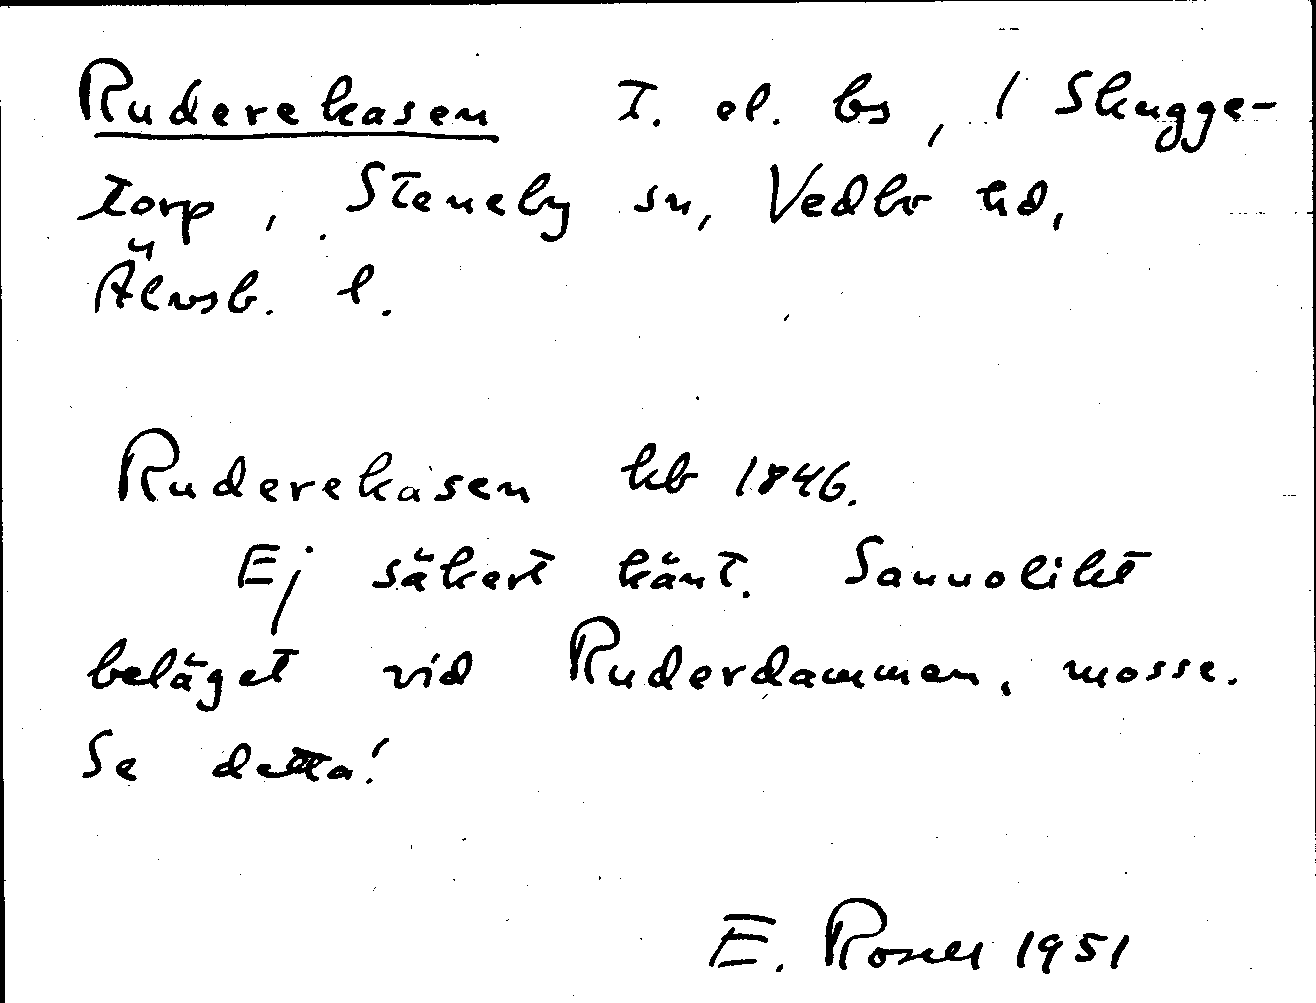 Ruderekasen T. el. bs, / Skugge-
torp, Steneby sn, Vedbo hd,
Älvsb. l.
Ruderekasen hb 1846.
Ej säkert känt. Sannolikt
beläget vid Ruderdammen, mosse.
Se detta!
E. Rosell 1951